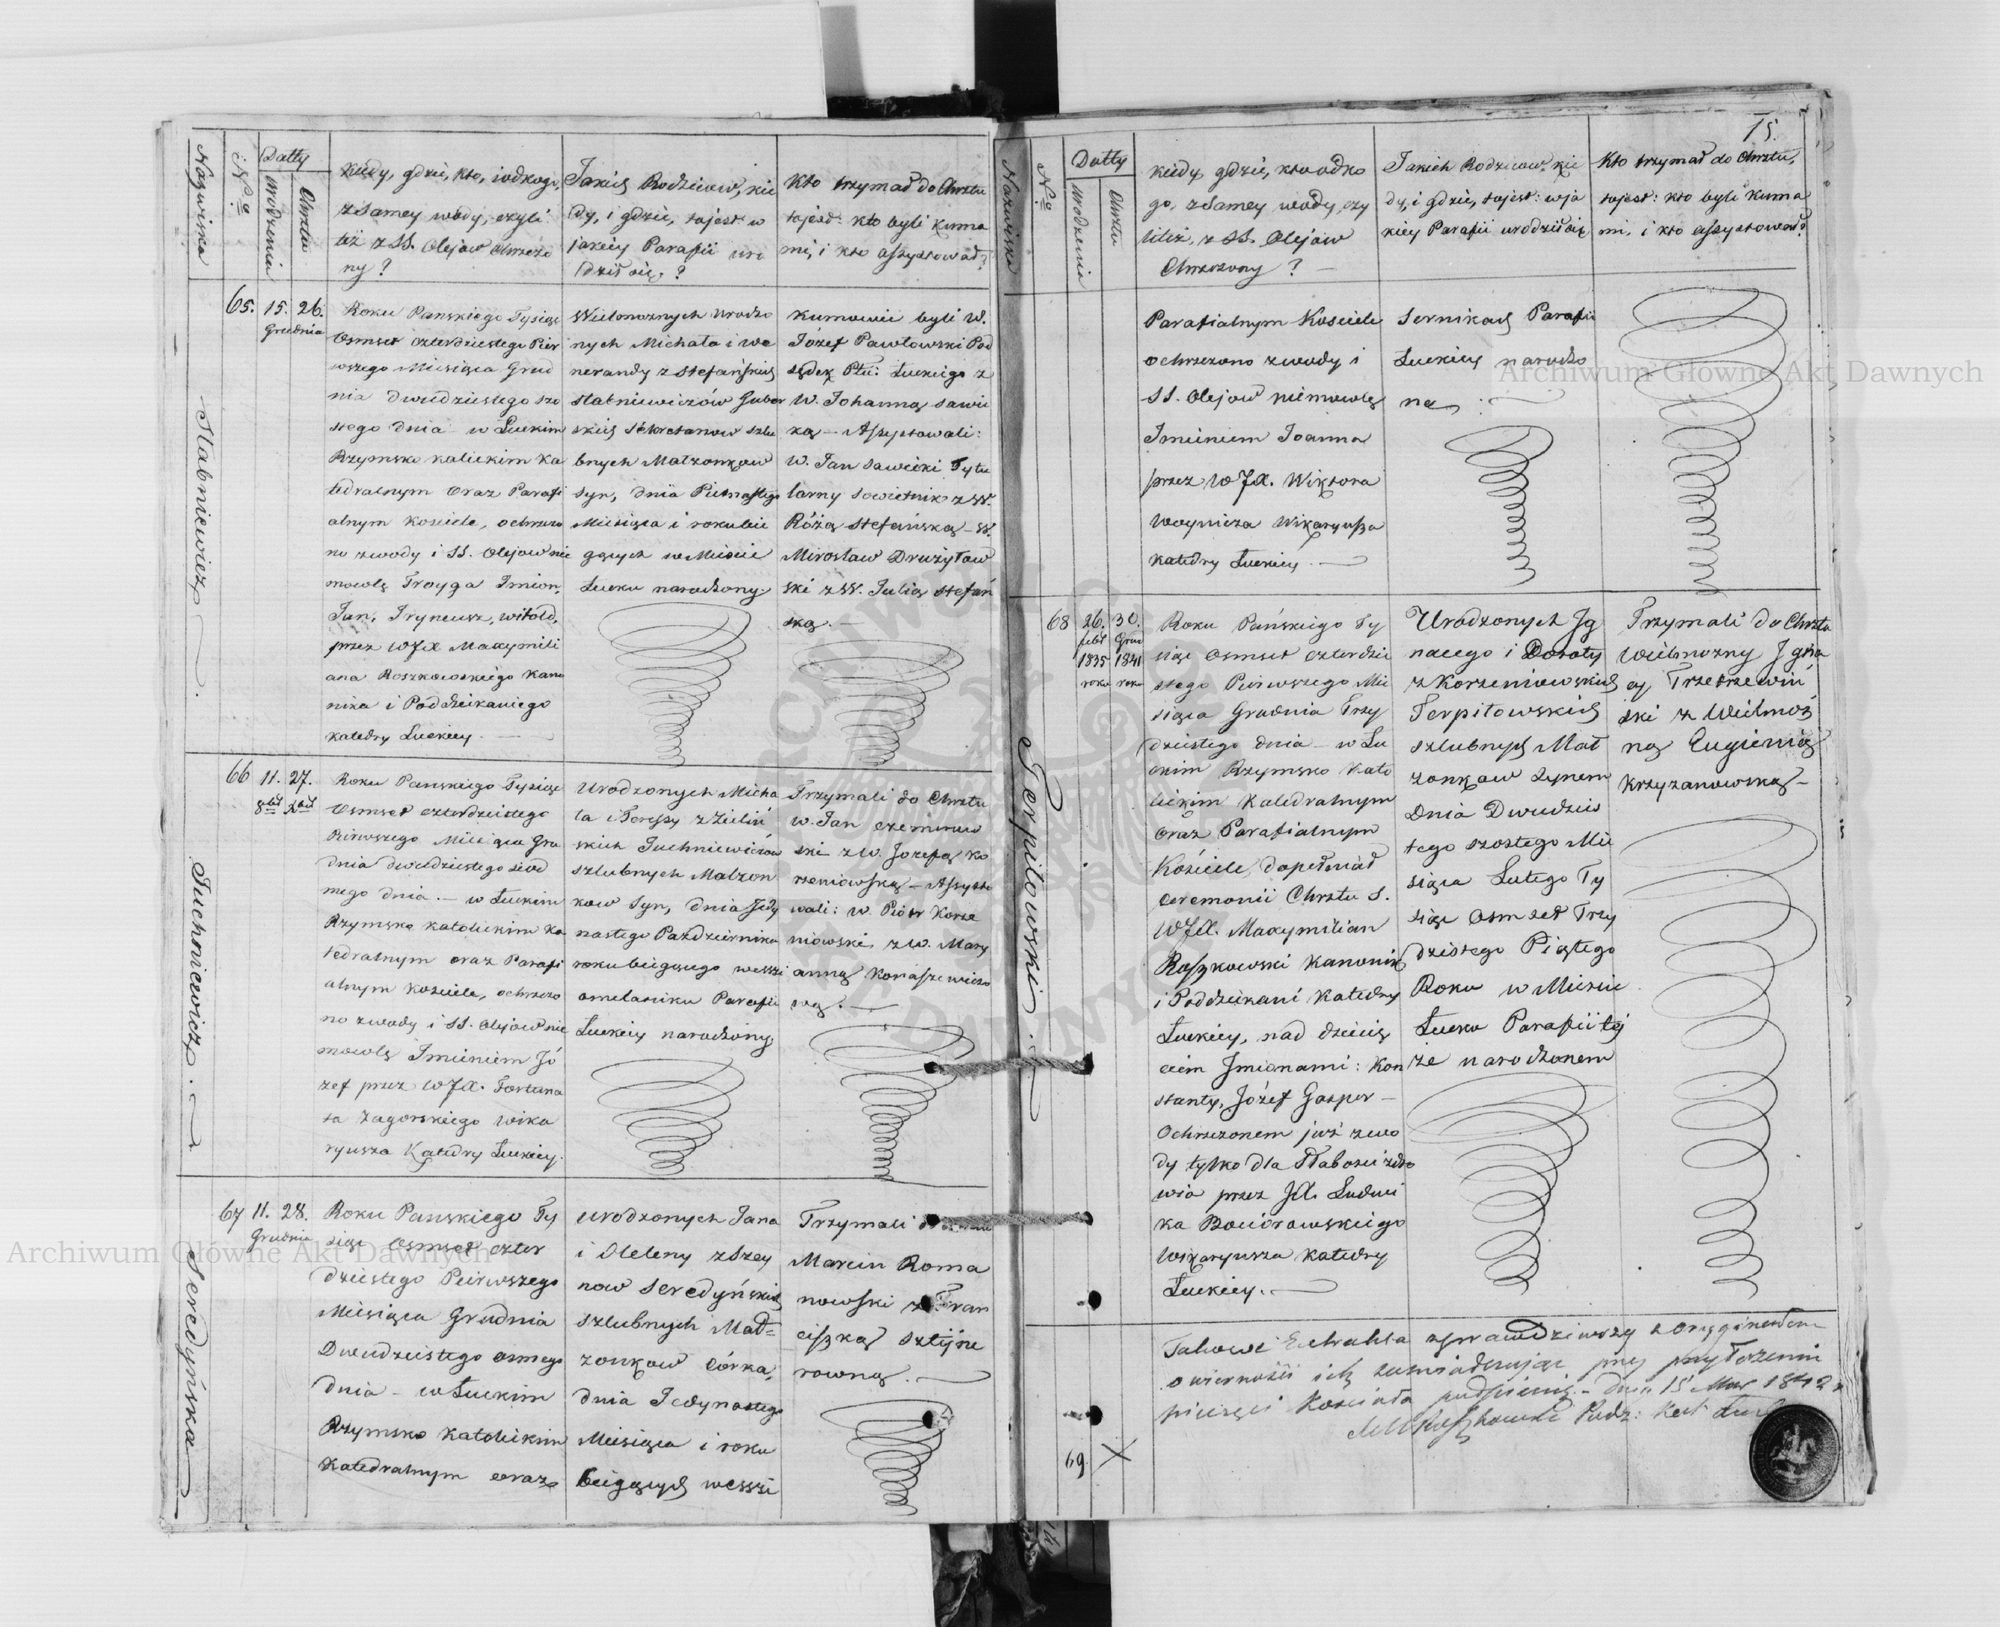 Nazwiska
No
Datty
Urodzenia
Chrztu
Kiedy, gdzie, kto, i od kogo,
z samey wody, czyli
też z SS. Olejów Chrzczo
ny?
Jakich Rodziców, kie
dy, i gdzie, to jest w
jakiey Parafii uro
dził się?
Kto trzymał do Chrztu
to jest: kto byli kuma
mi, i kto assystował?
Słabniewicz
65.
15. 26.
Grudnia
Roku Panskiego Tysiąc
Osmset czterdziestego Pier
wszego Miesiąca Grud
nia dwudziestego szo
stego dnia – w Łuckim
Rzymsko kalickim Ka
tedralnym oraz Parafi
alnym kosciele, ochrzczo
no z wody i SS. Olejow nie
mowlę Troyga Imion,
Jan, Iryneusz, Witold,
przez WJX Maxymili
ana Roszkowskiego Kano
nika i Poddziekaniego
katedry Łuckiey. —
Wielmoznych urodzo
nych Michała i We
nerandy z Stefańskich
Słabniewiczów Guber
skich Sekretarzow szlu
bnych Małzonkow
syn, dnia Pietnastego
Miesiąca i roku bie
gących w Miescie
Łucku narodzony.
Kumowie byli W.
Józef Pawłowski Pod
sędek Ptu: Łuckiego z
W. Johanną Sawic
ką — Assystowali:
W. Jan Sawicki Tytu
larny Sowietnik z W.
Różą Stefańską – W.
Mirosław Drużyłow
ski z W. Julią Stefań
ską. —
Juchniewicz.
66
11. 27.
8bra Xbra
Roku Panskiego Tysiąc
Osmset czterdziestego
Pierwszego Miesiąca Gru
dnia dwudziestego siod
mego dnia. – w Łuckim
Rzymsko katolickim Ka
tedralnym oraz Parafi
alnym kosciele, ochrzczo
no z wody i SS. Olejow nie
mowlę Imieniem Jó
zef przez WJX. Fortuna
ta Zagorskiego wika
ryusza Katedry Łuckiey.
Urodzonych Micha
ła i Teressy z Zieliń
skich Juchniewiczów
szlubnych Małzon
kow syn, dnia Jedy
nastego Pazdziernika
roku biegącego we wsi
Omelaniku Parafii
Łuckiey narodzony,
Trzymali do Chrztu
W. Jan Czerminw
ski z W. Jozefą Ko
rzeniowską — Assysto
wali: W. Piotr Korze
niowski z W. Mary
anną Konaszewiczo
wą. —
Seredyńska
67
11. 28.
Grudnia
Roku Panskiego Ty
siąc Osmset czter
dziestego Pierwszego
Miesiąca Grudnia
Dwudziestego osmego
dnia – w Łuckim
Rzymsko Katolickim
Katedralnym oraz
Urodzonych Jana
i Heleny z Szey
now Seredyńskich
szlubnych Mał=
zonkow córka,
dnia Jedynastego
Miesiąca i roku
biegących we wsi
Trzymali do
Marcin Roma
nowski z Fran
ciszką Sztyne
rowną. —
15.
Nazwiska
No
Datty
Urodzenia
Chrztu
Kiedy, gdzie, kto od ko
go, z samey wody, czy
liteż, z SS. Olejów
Chrzczony? —
Jakich Rodzicow, kie
dy, i gdzie, to jest: w ja
kiey Parafii urodził się
Kto trzymał do Chrztu,
to jest: kto byli kuma
mi, i kto assystował?
Parafialnym Kosciele
ochrzczono z wody i
SS. Olejow niemowlę
Imieniem Joanna
przez WJX. Wiktora
Woynicza Wikaryusza
Katedry Łuckiey. —
Sernikach Parafii
Łuckiey narodzo
na. —
Terpiłowski. —
68
26. 30.
febr Grud
1835 1841
roku roku
Roku Pańskiego Ty
siąc Osmset czterdzie
stego Pierwszego Mie
siąca Grudnia Trzy
dziestego dnia – w Łu
ckim Rzymsko Kato
lickim Katedralnym
oraz Parafialnym
Kościele, dopełniał
Ceremonii Chrztu S.
WJX. Maxymilian
Roszkowski Kanonik
i Poddziekani Katedry
Łuckiey, nad dziecię
ciem Imionami: Kon
stanty, Józef Gasper —
Ochrzczonem już z wo
dy tylko dla słabości zdro
wia przez JX. Ludwi
ka Wikaryusza Katedry
Łuckiey. —
Urodzonych Ig
nacego i Doroty
z Korzeniowskich
Terpiłowskich
szlubnych Mał
zonkow synem
Dnia Dwudzies
tego szostego Mie
siąca Lutego Ty
siąc Osmset Trzy
dziestego Piątego
Roku w Miescie
Łucku Parafii tey
że narodzonem
Trzymali do Chrztu
Wielmozny Igna
cy Trzetrzewiń
ski z Wielmoż
ną Eugienią
Krzyzanowską —
69. X
Takowe Extrakta sprawdziwszy z oryginałem
o wierności ich zaswiadczając przy przyłożeniu
pieczęci Kościoła podpisuię. – Dnia 15 Mar 1842 r